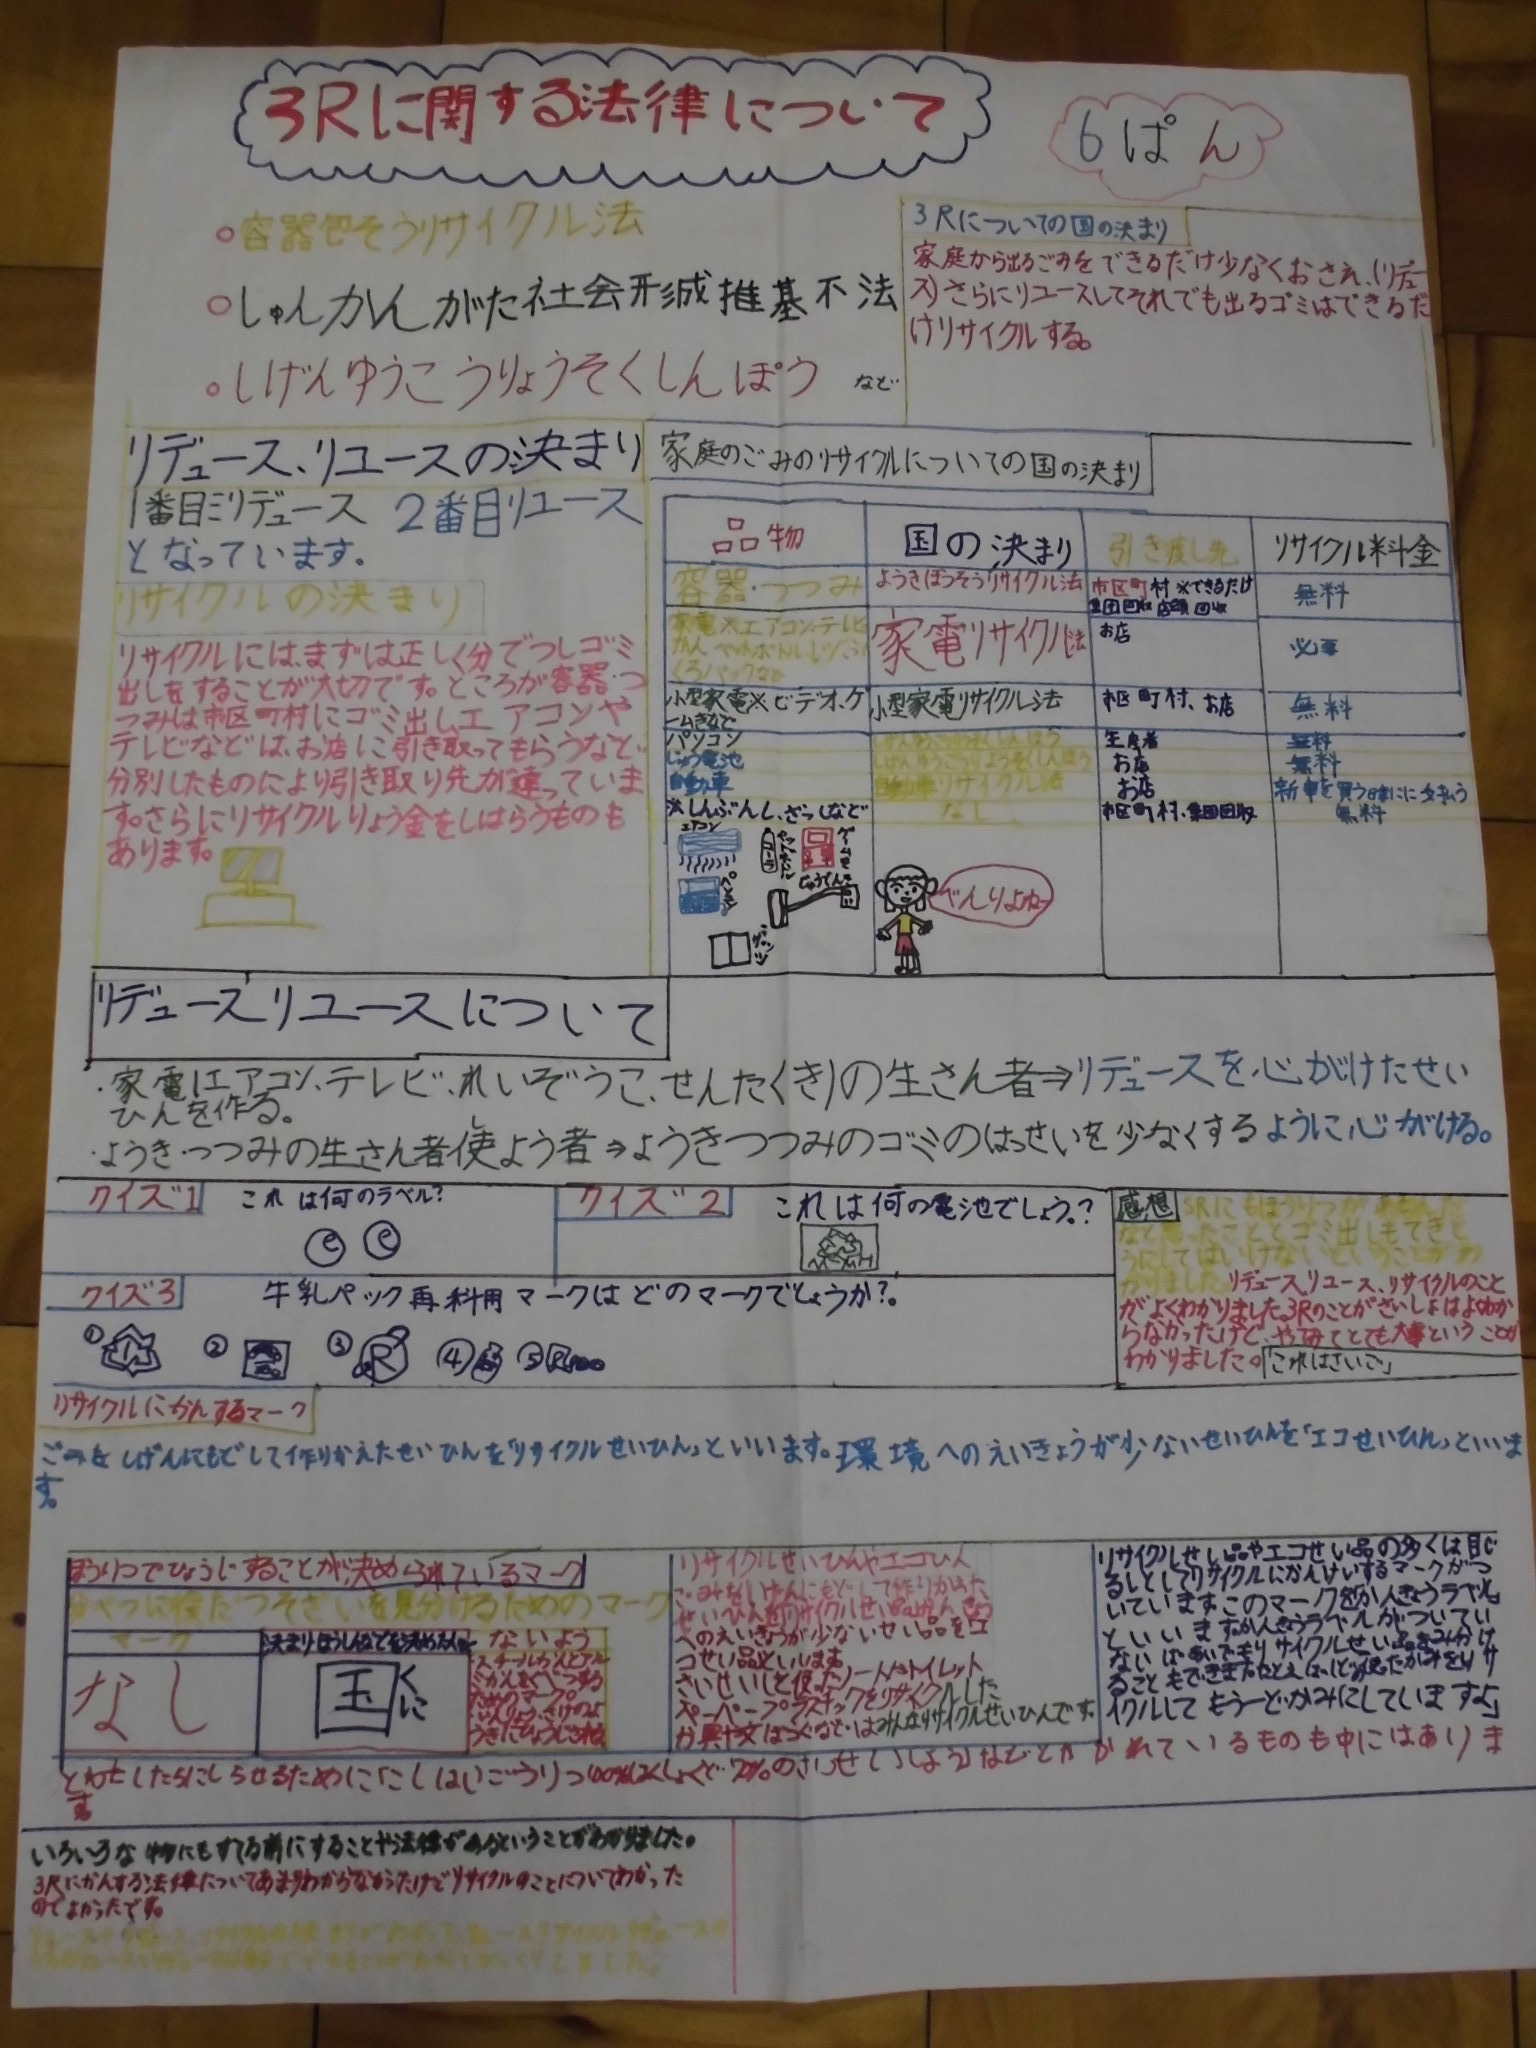 3Rに関する法律について
6ぱん
容器包そうリサイクル法
じゅんかんがた社会形成推基本法
しげんゆうこうりょうそくしんぽう など
3Rについての国の決まり
家庭から出るごみをできるだけ少なくおさえ、(リデュー
ス)さらにリユースしてそれでも出るゴミはできるだ
けリサイクルする。
リデュース、リユースの決まり
1番目にリデュース 2番目リユース
となっています。
リサイクルの決まり
リサイクルには、まずは正しく分でつしゴミ
出しをすることが大切です。ところが容器・つ
つみは市区町村にゴミ出しエアコンや
テレビなどは、お店に引き取ってもらうなど
分別したものにより引き取り先が違っていま
す。さらにリサイクルりょう金をしはらうものも
あります。
家庭のごみのリサイクルについての国の決まり
品物 国の決まり 引き渡し先 リサイクル料金
容器・つつみ ようきほうそうリサイクル法 市区町村 ※できるだけ
集団回収 店頭回収 無料
家電※エアコン・テレビ
家電リサイクル法 お店 必要
小型家電※ビデオ、ゲ
ームきなど 小型家電リサイクル法 市区町村、お店 無料
パソコン 生産者 無料
じゅう電池 お店 無料
自動車 自動車リサイクル法 お店 新車を買う時にに支払う
※しんぶんし、ざっしなど なし 市区町村・集団回収 無料
エアコン
べんりよねー
リデュースリユースについて
・家電(エアコン、テレビ、れいぞうこ、せんたくき)の生さん者⇒リデュースを心がけたせい
ひんを作る。
・ようき・つつみの生さん者使よう者⇒ようきつつみのゴミのはっせいを少なくするように心がける。
クイズ1 これは何のラベル?
クイズ2 これは何の電池でしょう。?
クイズ3 牛乳パック再利用マークはどのマークでしょうか?。
① ② ③ ④ ⑤
感想
なと思ったこととゴミ出しもてきと
うにしてはいけないということがわ
かりました。リデュース、リユース、リサイクルのこと
がよくわかりました。3Rのことがさいしょはよくわか
らなかったけど、やってみてとても大事ということが
わかりました。「これはさいご」
リサイクルにかんするマーク
ごみをしげんにもどして作りかえたせいひんを「リサイクルせいひん」といいます。環境へのえいきょうが少ないせいひんを「エコせいひん」といいま
す。
ほうりつでひょうじすることが決められているマーク
分べつに役だつそざいを見分けるためのマーク
マーク
ないよう
なし
国 くに
リサイクルせいひんやエコひん
ごみをしげんにもどして作りかえた
へのえいきょうが少ないせい品をエ
コせい品といいます
リサイクルせい品やエコせい品の多くは目じ
るしとしてリサイクルにかんけいするマークがつ
いていますこのマークをかんきょうラベル
といいますかんきょうラベルがついてい
イクルしてもう一どかみにしていますよ」
いろいろな物にもすてる前にすることや法律があるということがわかりました。
3Rにかんする法律についてあまりわからなかったけどリサイクルのことについてわかった
のでよかったです。